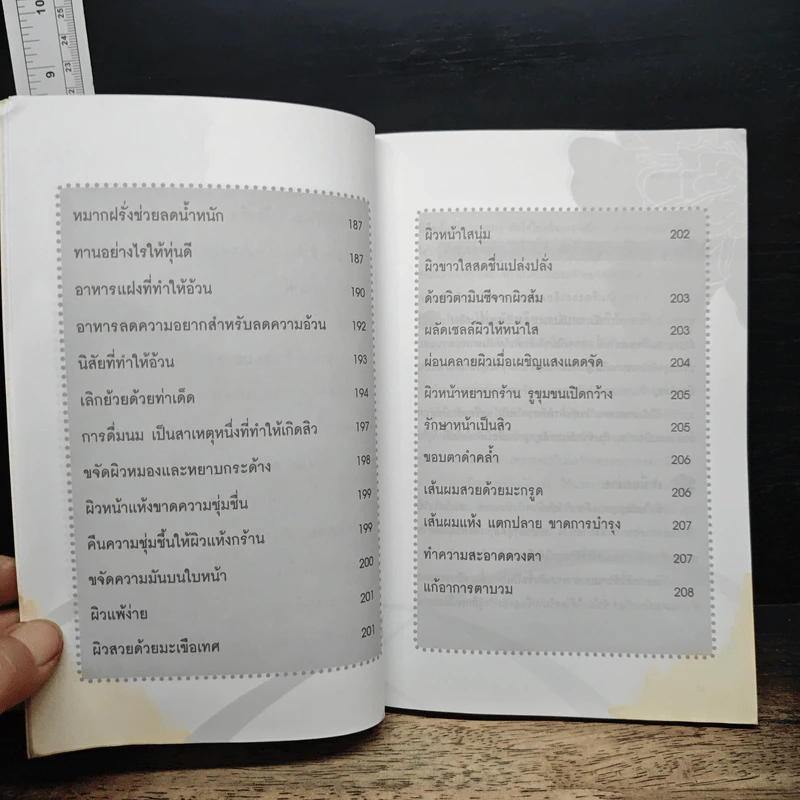 หมากฝรั่งช่วยลดน้ำหนัก 187
ทานอย่างไรให้หุ่นดี 187
อาหารแฝงที่ทำให้อ้วน 190
อาหารลดความอยากสำหรับลดความอ้วน 192
นิสัยที่ทำให้อ้วน 193
เลิกย้วยด้วยท่าเด็ด 194
การดื่มนม เป็นสาเหตุหนึ่งที่ทำให้เกิดสิว 197
ขจัดผิวหมองและหยาบกระด้าง 198
ผิวหน้าแห้งขาดความชุ่มชื่น 199
คืนความชุ่มชื้นให้ผิวแห้งกร้าน 199
ขจัดความมันบนใบหน้า 200
ผิวแพ้ง่าย 201
ผิวสวยด้วยมะเขือเทศ 201
ผิวหน้าใสนุ่ม 202
ผิวขาวใสสดชื่นเปล่งปลั่ง
ด้วยวิตามินซีจากผิวส้ม 203
ผลัดเซลล์ผิวให้หน้าใส 203
ผ่อนคลายผิวเมื่อเผชิญแสงแดดจัด 204
ผิวหน้าหยาบกร้าน รูขุมขนเปิดกว้าง 205
รักษาหน้าเป็นสิว 205
ขอบตาดำคล้ำ 206
เส้นผมสวยด้วยมะกรูด 206
เส้นผมแห้ง แตกปลาย ขาดการบำรุง 207
ทำความสะอาดดวงตา 207
แก้อาการตาบวม 208
10
9
25
24
23